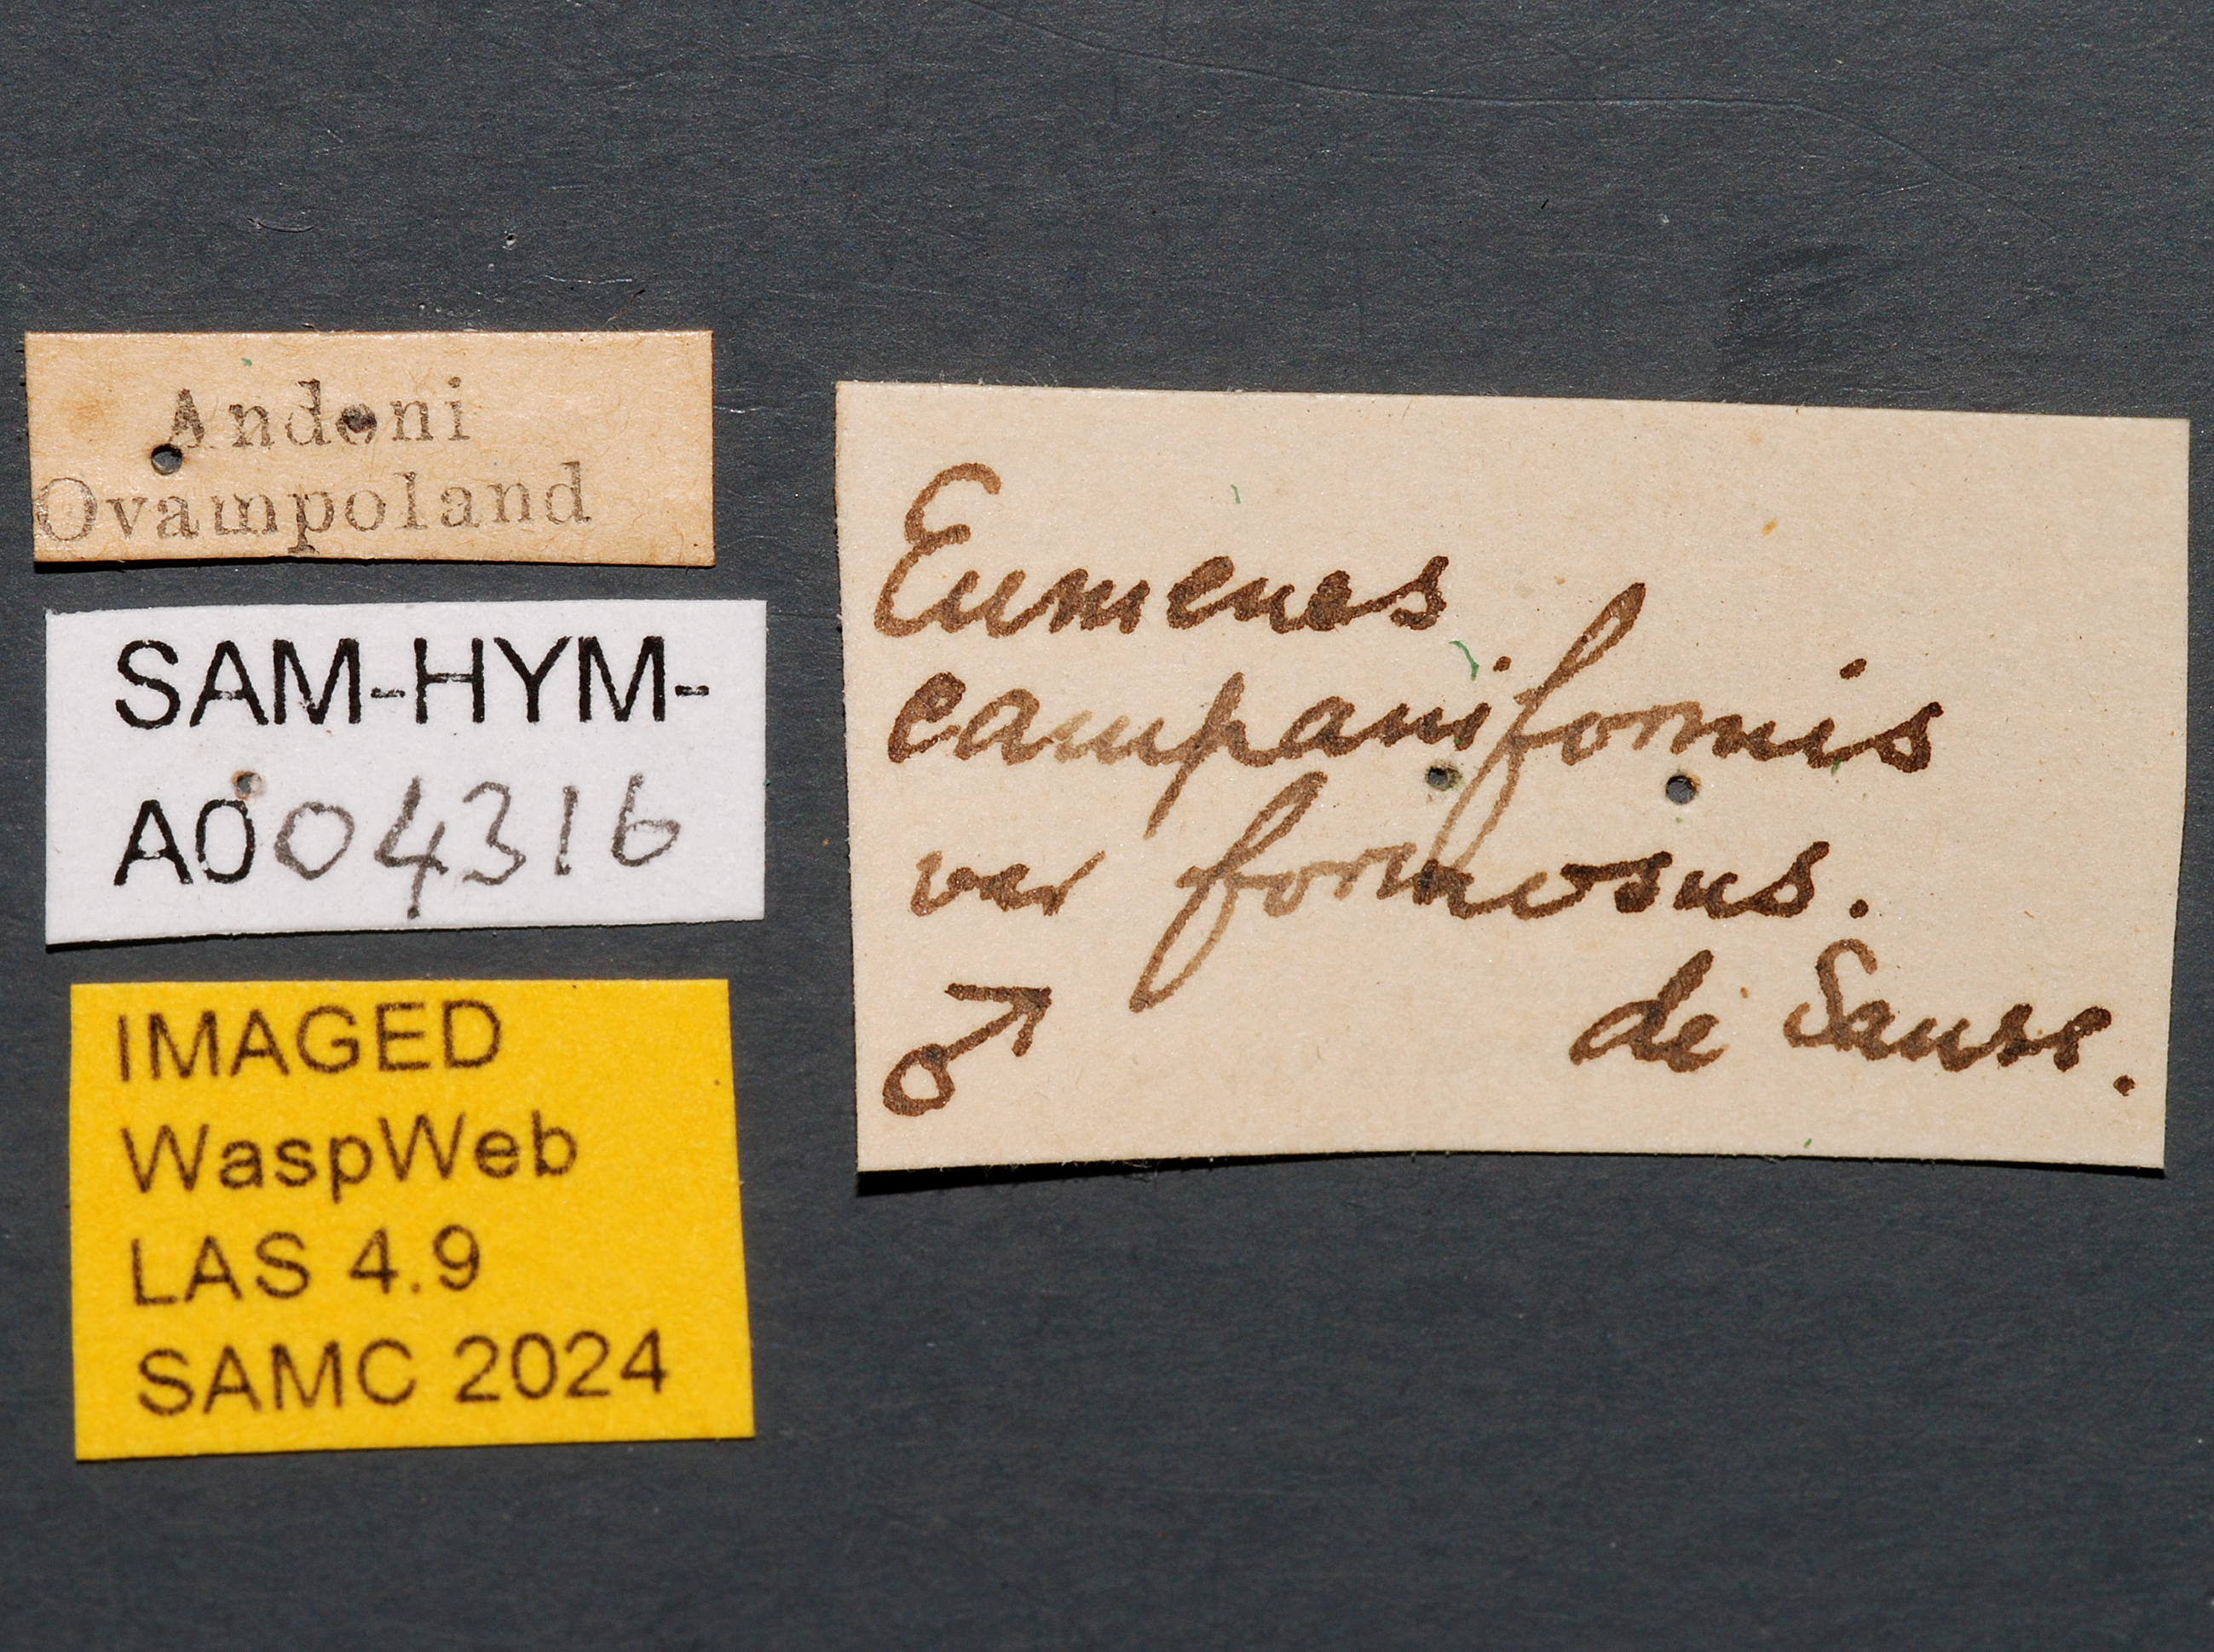 Andoni
Ovampoland
SAM-HYM-
A004316
IMAGED
WaspWeb
LAS 4.9
SAMC 2024
Eumenes
campaniformis
var formosus.
♂ de Sauss.